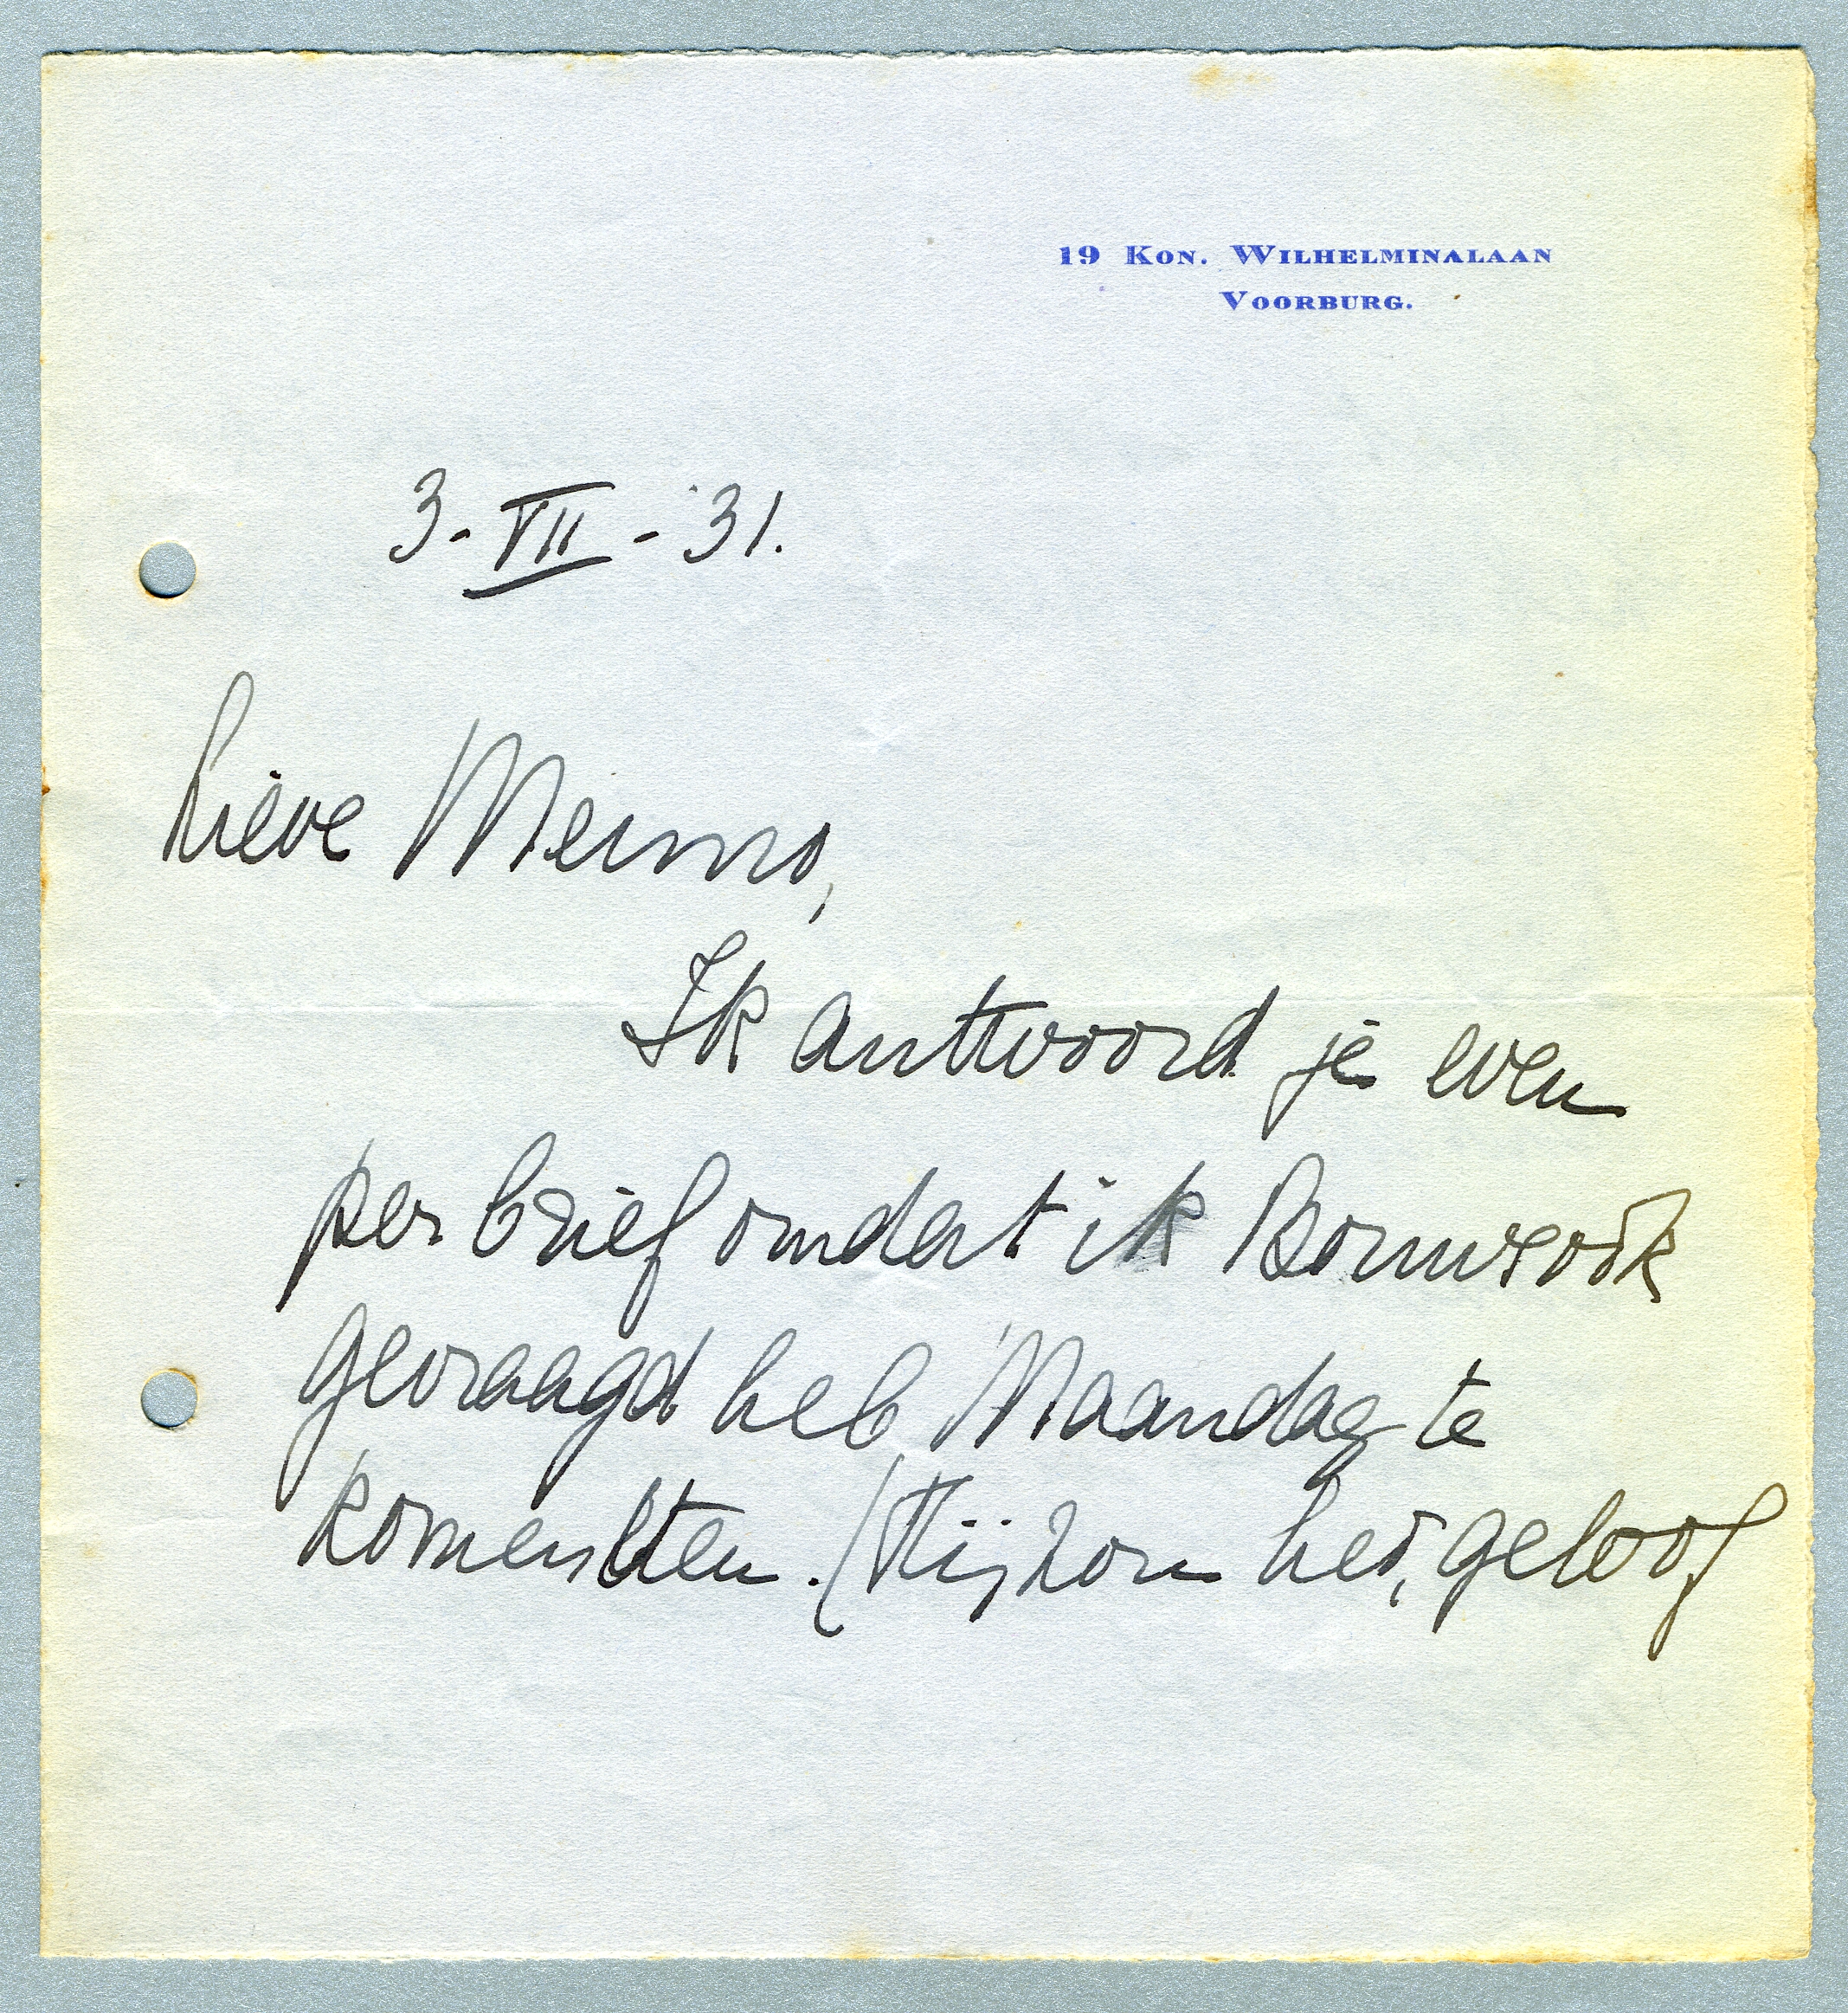 19 KON. WILHELMINALAAN
VOORBURG.
3-VII-31.
Lieve Menno,
Ik antwoord je even
per brief omdat ik Bouws ook
gevraagd heb Maandag te
komen eten. (Hij zou het, geloof